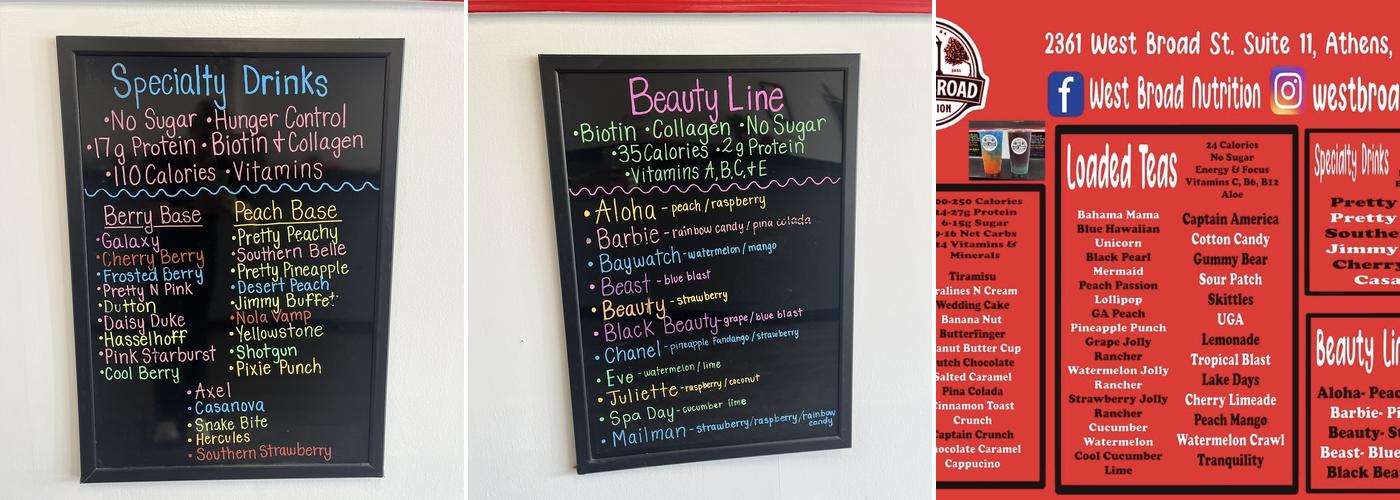 Specialty Drinks
•No Sugar •Hunger Control
•17g Protein •Biotin & Collagen
•110 Calories •Vitamins
Berry Base
•Galaxy
•Cherry Berry
•Frosted Berry
•Pretty N Pink
•Dutton
•Daisy Duke
•Hasselhoff
•Pink Starburst
•Cool Berry
Peach Base
•Pretty Peachy
•Southern Belle
•Pretty Pineapple
•Desert Peach
•Jimmy Buffet
•Nola Vamp
•Yellowstone
•Shotgun
•Pixie Punch
•Axel
•Casanova
•Snake Bite
•Hercules
•Southern Strawberry
Beauty Line
•Biotin •Collagen •No Sugar
•35 Calories •2g Protein
•Vitamins A,B,C,&E
•Aloha - peach/raspberry
•Barbie - rainbow candy / pina colada
•Baywatch - watermelon/mango
•Beast - blue blast
•Beauty - strawberry
•Black Beauty - grape/blue blast
•Chanel - pineapple Fandango / strawberry
•Eve - watermelon / lime
•Juliette - raspberry / coconut
•Spa Day - cucumber lime
•Mailman - strawberry/raspberry/rainbow
candy
2361 West Broad St. Suite 11, Athens,
West Broad Nutrition
westbroa
ROAD
ION
00-250 Calories
24-27g Protein
6-15g Sugar
9-16 Net Carbs
24 Vitamins &
Minerals
Tiramisu
ralines N Cream
Wedding Cake
Banana Nut
Butterfinger
anut Butter Cup
utch Chocolate
Salted Caramel
Pina Colada
innamon Toast
Crunch
aptain Crunch
ocolate Caramel
Cappucino
Loaded Teas
24 Calories
No Sugar
Energy & Focus
Vitamins C, B6, B12
Aloe
Bahama Mama
Blue Hawaiian
Unicorn
Black Pearl
Mermaid
Peach Passion
Lollipop
GA Peach
Pineapple Punch
Grape Jolly
Rancher
Watermelon Jolly
Rancher
Strawberry Jolly
Rancher
Cucumber
Watermelon
Cool Cucumber
Lime
Captain America
Cotton Candy
Gummy Bear
Sour Patch
Skittles
UGA
Lemonade
Tropical Blast
Lake Days
Cherry Limeade
Peach Mango
Watermelon Crawl
Tranquility
Specialty Drinks
Pretty
Pretty
Southe
Jimmy
Cherry
Casa
Beauty Li
Aloha- Peac
Barbie- Pi
Beauty- St
Beast- Blue
Black Bea